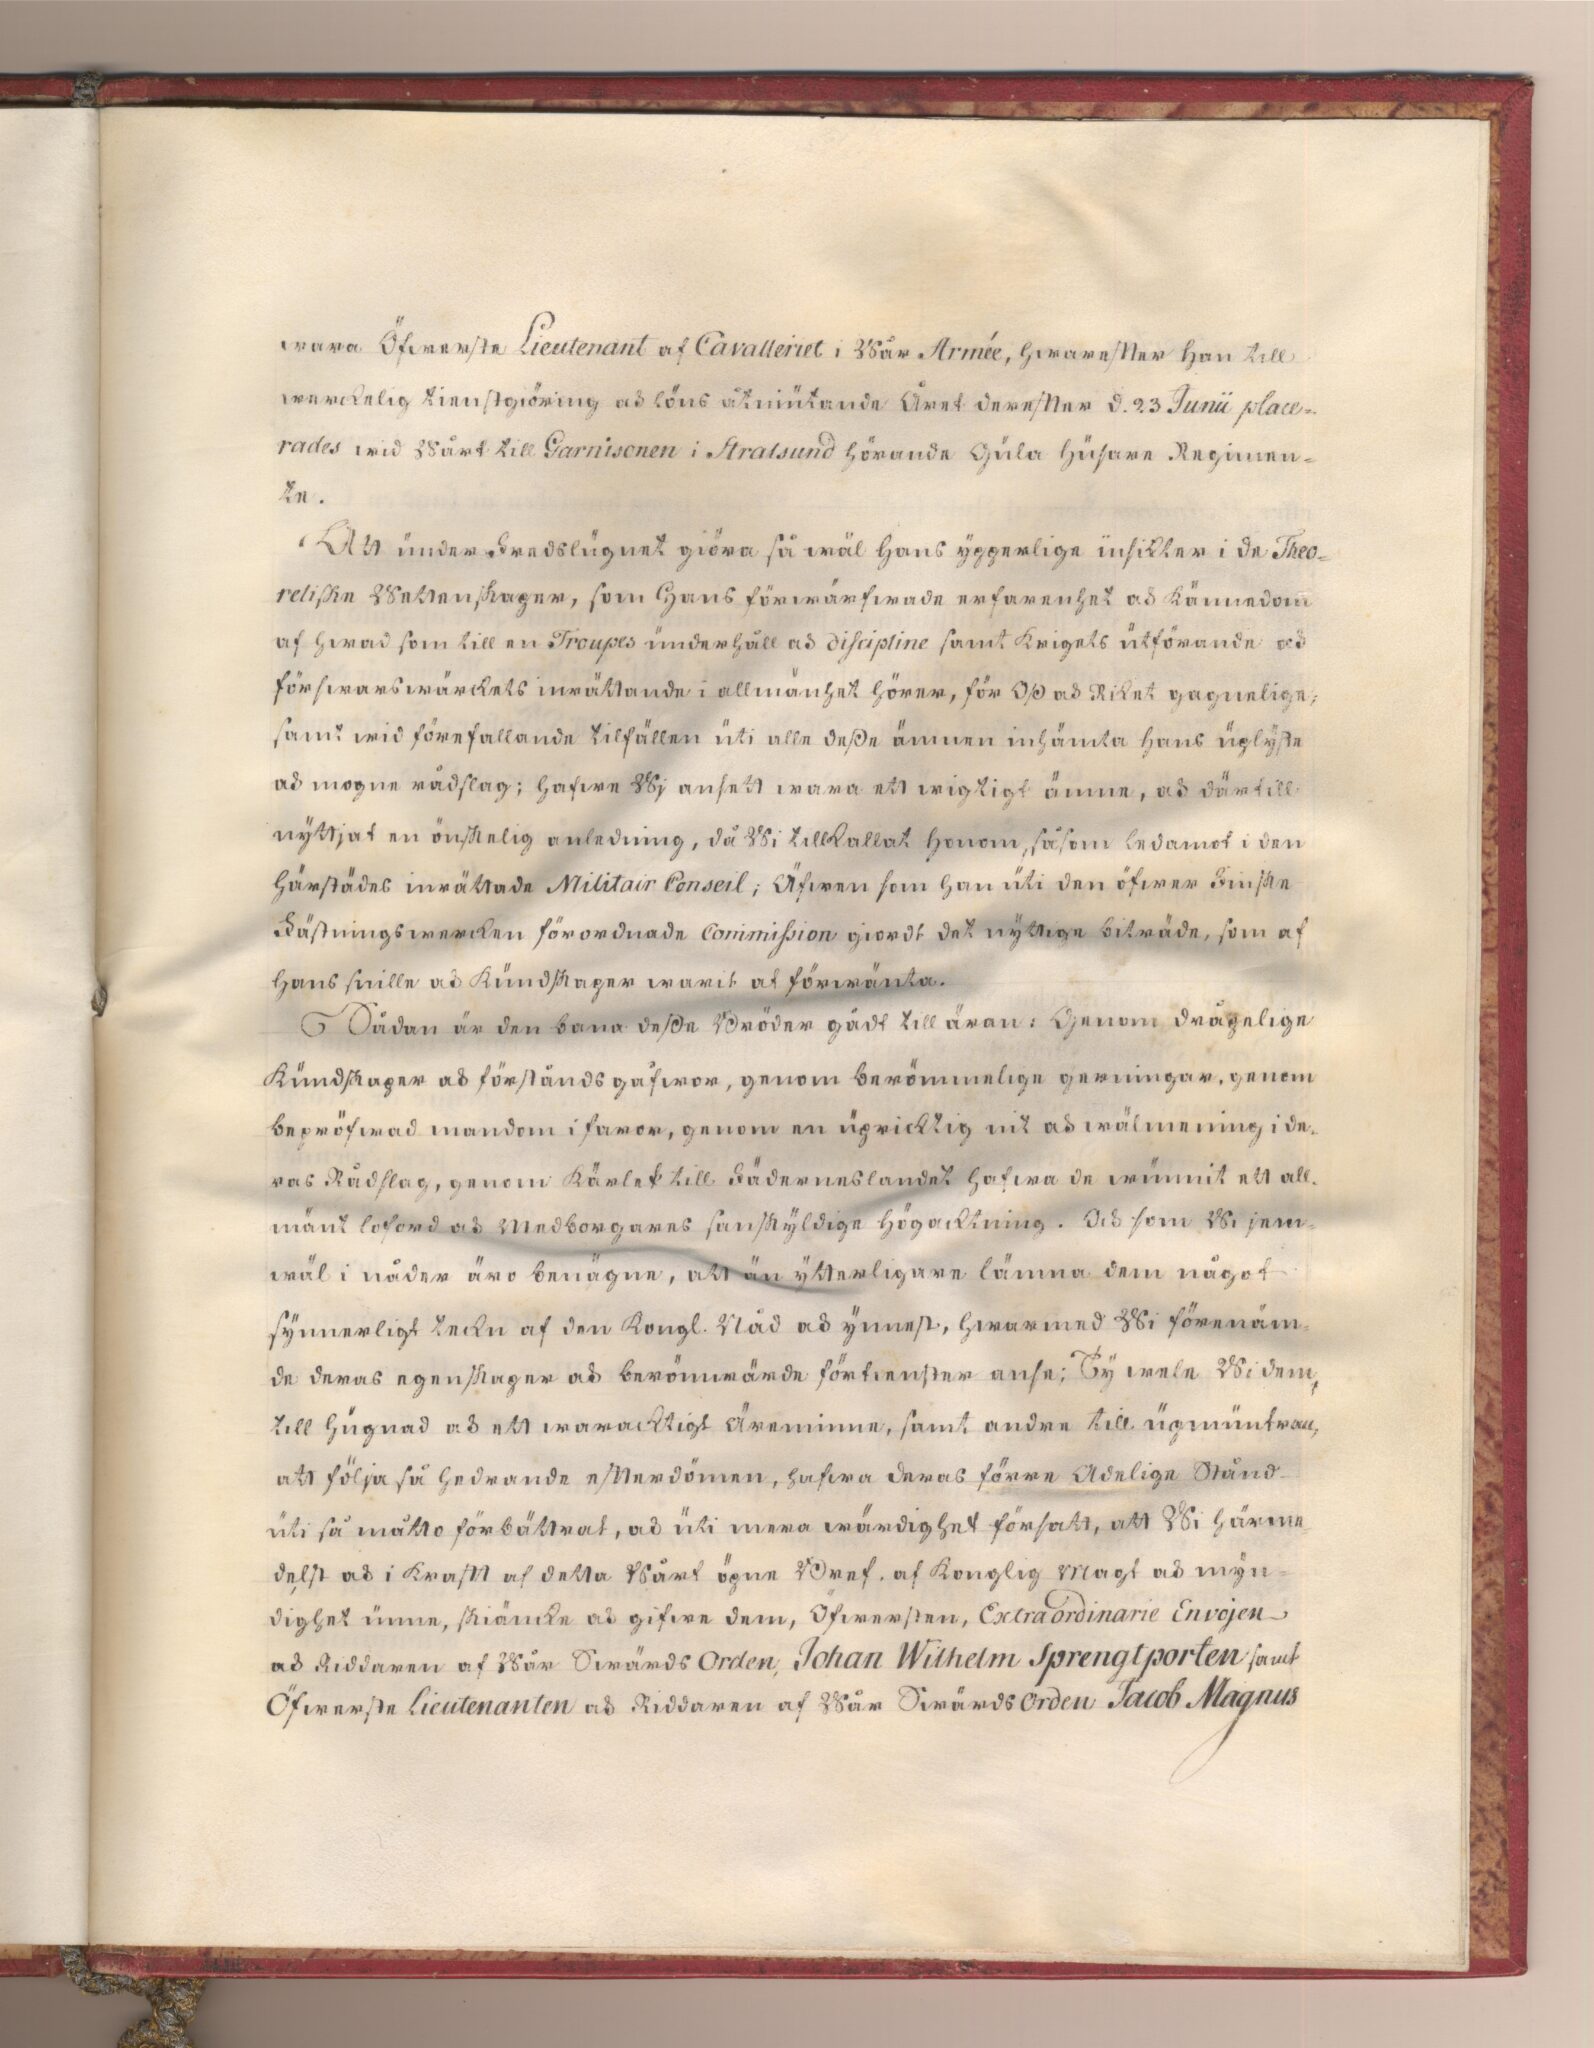 wara Öfwerste Lieutenant af Cavalleriet i Wår Armée, hwarefter han till
werckelig tienstgiöring och löns åtniutande Året derefter d. 23 Junii place-
rades wid Wårt till Garnisonen i Stralsund hörande Gula Husare Regimen-
te.
Att under Fredslugnet giöra så wäl hans ypperlige insikter i de Theo-
retiske Wettenskaper, som hans förwärfwade erfarenhet och kännedom
af hwad som till en Troupes underhåll och discipline samt krigets utförande och
förswarswärckets inrättande i allmänhet hörer, för Oss och Riket gagnelige;
samt wid förefallande tilfällen uti alle desse ämnen inhämta hans uplyste
och mogne rådslag; hafwe Wj ansett wara ett wigtigt ämne, och därtill
nyttjat en önskelig anledning, då Wi tillkallat honom, såsom ledamot i den
härstädes inrättade Militair Conseil; Äfwen som han uti den öfwer Finske
Fästningswercken förordnade Commission giordt det nyttige biträde, som af
hans snille och Kundskaper warit at förwänta.
Sådan är den bana desse Bröder gådt till äran: Genom dråpelige
Kundskaper och förståndsgåfwor, genom berömmelige gerningar, genom
bepröfwad mandom i faror, genom en uprichtig nit och wälmening i de-
ras Rådslag, genom Kärlek till Fäderneslandet hafwa de wunnit ett all-
mänt loford och Medborgares sanskyldige högachtning. Och som Wi jem-
wäl i nåder äro benägne, att än ytterligare lämna dem något
synnerligt teckn af den Kongl. Nåd och ynnest, hwarmed Wi förenäm-
de deras egenskaper och berömwärde förtienster anse; Ty wele Wi dem,
till hugnad och ett warachtigt Äreminne, samt andre till upmuntran,
att följa så hedrande efterdömen, hafwa deras förre Adelige Stånd
uti så måtto förbättrat, och uti mera wärdighet försatt, att Wi härme-
delst och i Kraft af detta Wårt öpne Bref, af Konglig Magt och myn-
dighet unne, skiäncke och gifwe dem, Öfwersten, Extra ordinarie Envojen
och Riddaren af Wår Swärds Orden, Johan Wilhelm Sprengtporten samt
Öfwerste Lieutenanten och Riddaren af Wår Swärds Orden Jacob Magnus